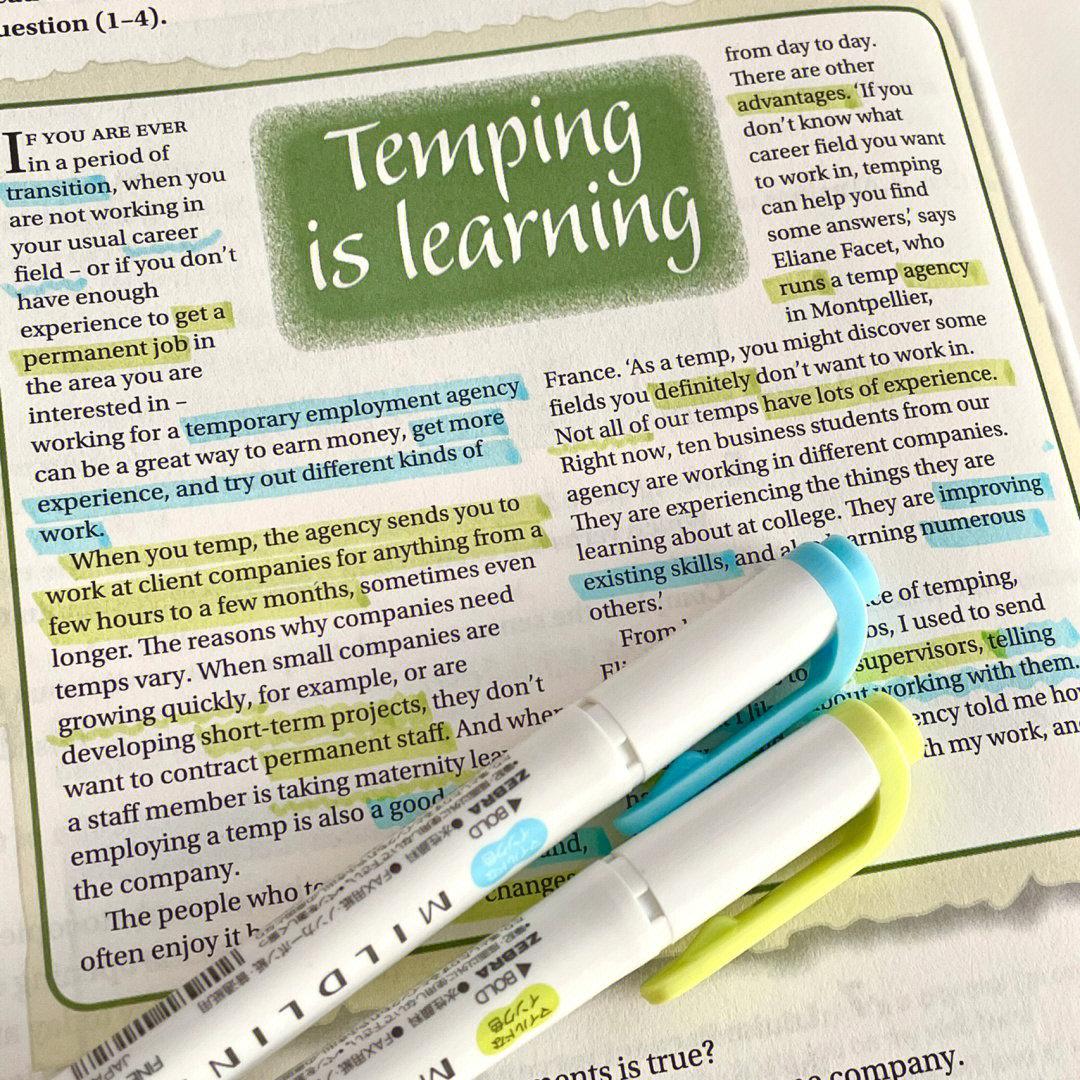 uestion (1–4).
Temping
is learning
IF YOU ARE EVER
in a period of
transition, when you
are not working in
your usual career
field – or if you don't
have enough
experience to get a
permanent job in
the area you are
interested in –
working for a temporary employment agency
can be a great way to earn money, get more
experience, and try out different kinds of
work.
When you temp, the agency sends you to
work at client companies for anything from a
few hours to a few months, sometimes even
longer. The reasons why companies need
temps vary. When small companies are
growing quickly, for example, or are
developing short-term projects, they don't
want to contract permanent staff. And when
a staff member is taking maternity
employing a temp is also a good
the company.
The people who
often enjoy it
and,
changes
from day to day.
There are other
advantages. 'If you
don't know what
career field you want
to work in, temping
can help you find
some answers,' says
Eliane Facet, who
runs a temp agency
in Montpellier,
France. 'As a temp, you might discover some
fields you definitely don't want to work in.
Not all of our temps have lots of experience.
Right now, ten business students from our
agency are working in different companies.
They are experiencing the things they are
learning about at college. They are improving
existing skills, and arning numerous
others.'
From ce of temping,
os, I used to send
to supervisors, telling
working with them.
ency told me ho
h my work, an
ZEBRA
BOLD
マイルドな
インク色
MILDLIN
ZEBRA
BOLD
マイルドな
インク色
M
FINE
JAPA
ents is true?
company.